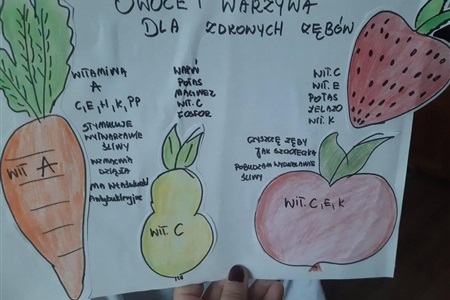 OWOCE I WARZYWA
DLA ZDROWYCH ZĘBÓW
WITAMINA
A
C,E,H,K,PP
STYMULUJE
WYTWARZANIE
ŚLINY
WZMACNIA
DZIĄSŁA
MA WŁAŚCIWOŚCI
WIT A
WAPŃ
POTAS
MAGNEZ
WIT. C
FOSFOR
WIT. C
WIT. C
WIT. E
POTAS
ŻELAZO
WIT. K
CZYSZCZĘ ZĘBY
JAK SZCZOTECZKA
POBUDZAM WYDZIELANIE
ŚLINY
WIT. C, E, K